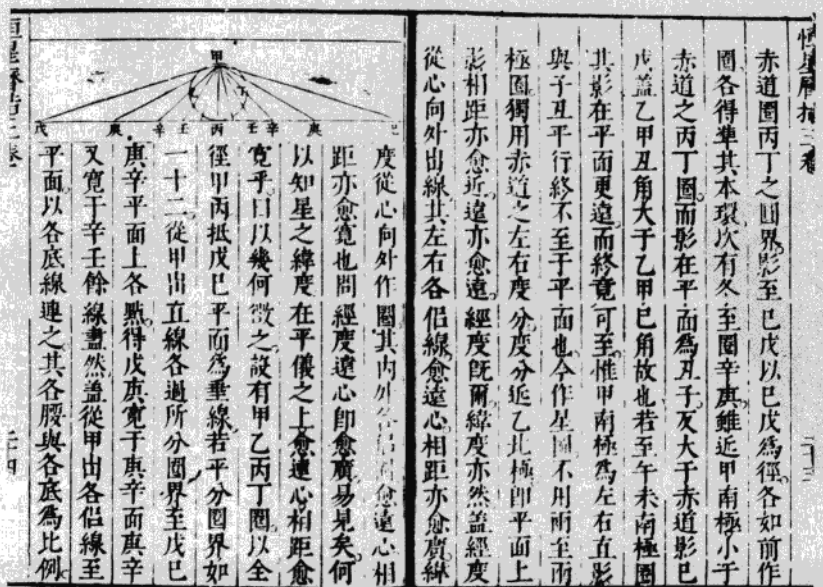 恒星曆指三卷
赤道圈丙丁之圓界影至巳戊以巳戊爲徑各如前作
圈各得準其本環次有冬至圈辛庚雖近甲南極小于
赤道之丙丁圈而影在平面爲丑子反大于赤道影巳
戊蓋乙甲丑角大于乙甲巳角故也若至午未南極圈
其影在平面更遠而終竟可至惟甲南極爲左右直影
與子丑平行終不至于平面也今作星圖不用兩至兩
極圈獨用赤道之左右度分度分近乙北極卽平面上
影相距亦愈近遠亦愈遠經度旣爾緯度亦然蓋經度
從心向外出線其左右各侣線愈遠心相距亦愈廣緯
二十三
度從心向外作圈其内外各侣圈愈遠心相
距亦愈寛也問經度遠心卽愈廣易見矣何
以知星之緯度在平儀之上愈遠心相距愈
寛乎曰以幾何徴之設有甲乙丙丁圈以全
徑甲丙抵戊巳平面爲垂線若平分圈界如
一十二從甲出直線各過所分圈界至戊巳
庚辛平面上各點得戊庚寛于庚辛面庚辛
又寛于辛壬餘線盡然蓋從甲出各侣線至
平面以各底線連之其各腰與各底爲比例
甲
乙
丁
戊 庚 辛 壬 丙 壬 辛 庚 巳
恒星曆指三卷
二十四